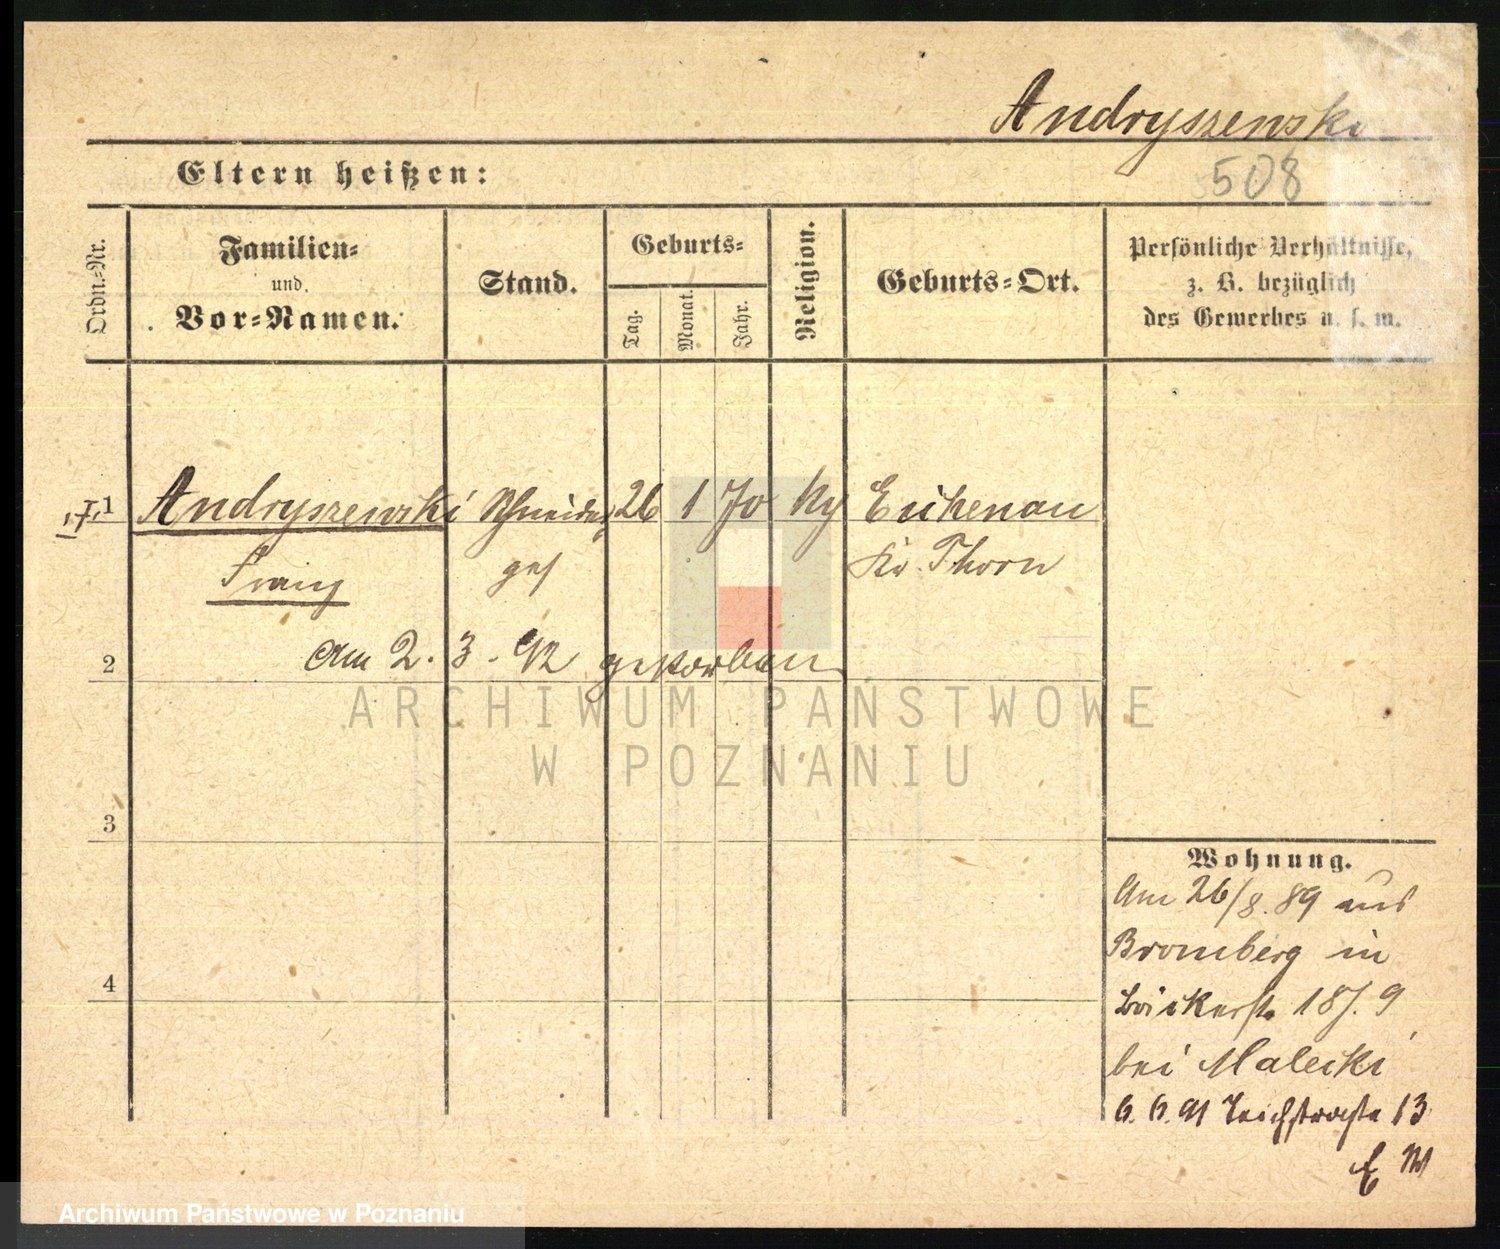 Andryszewski
508
Eltern heißen:
Ordn.-Nr.
Familien-
und
Vor-Namen.
Stand.
Geburts-
Tag.
Monat.
Jahr.
Religion.
Geburts-Ort.
Persönliche Verhältnisse,
z. B. bezüglich
des Gewerbes u. s. w.
1 Andryszewski Schneider 26 1 70 Eichenau
Franz ges Kr. Thorn
2 Am 2. 3. 92 gestorben
ARCHIWUM PAŃSTWOWE
W POZNANIU
3
4
Wohnung.
Am 26/8. 89 aus
Bromberg in
Bäckerstr 18/. 9
bei Malecki
6. 6. 91 Teichstraße 13
Archiwum Państwowe w Poznaniu